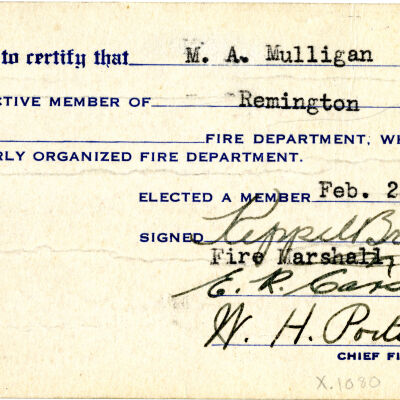 to certify that M. A. Mulligan
CTIVE MEMBER OF Remington
FIRE DEPARTMENT, WH
RLY ORGANIZED FIRE DEPARTMENT.
ELECTED A MEMBER Feb. 2
SIGNED Keppel Br
Fire Marshall,
E. R. Cars
W. H. Port
CHIEF FI
X.1080